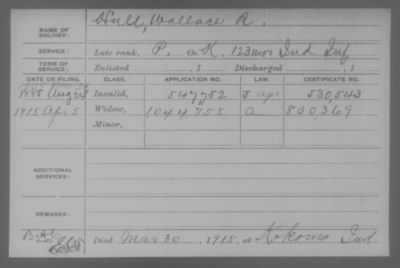 NAME OF SOLDIER: Hull, Wallace R.
SERVICE: Late rank, P. Co K, 123 Regt Ind Inf
TERM OF SERVICE: Enlisted , 1 Discharged , 1
DATE OF FILING. CLASS. APPLICATION NO. LAW. CERTIFICATE NO.
1885 Aug Invalid, 547,752 530,543
1915 Apr 5 Widow, 1044,755 800,369
Minor,
ADDITIONAL SERVICES:
REMARKS:
Died Mar 30, 1915, at Kokomo Ind